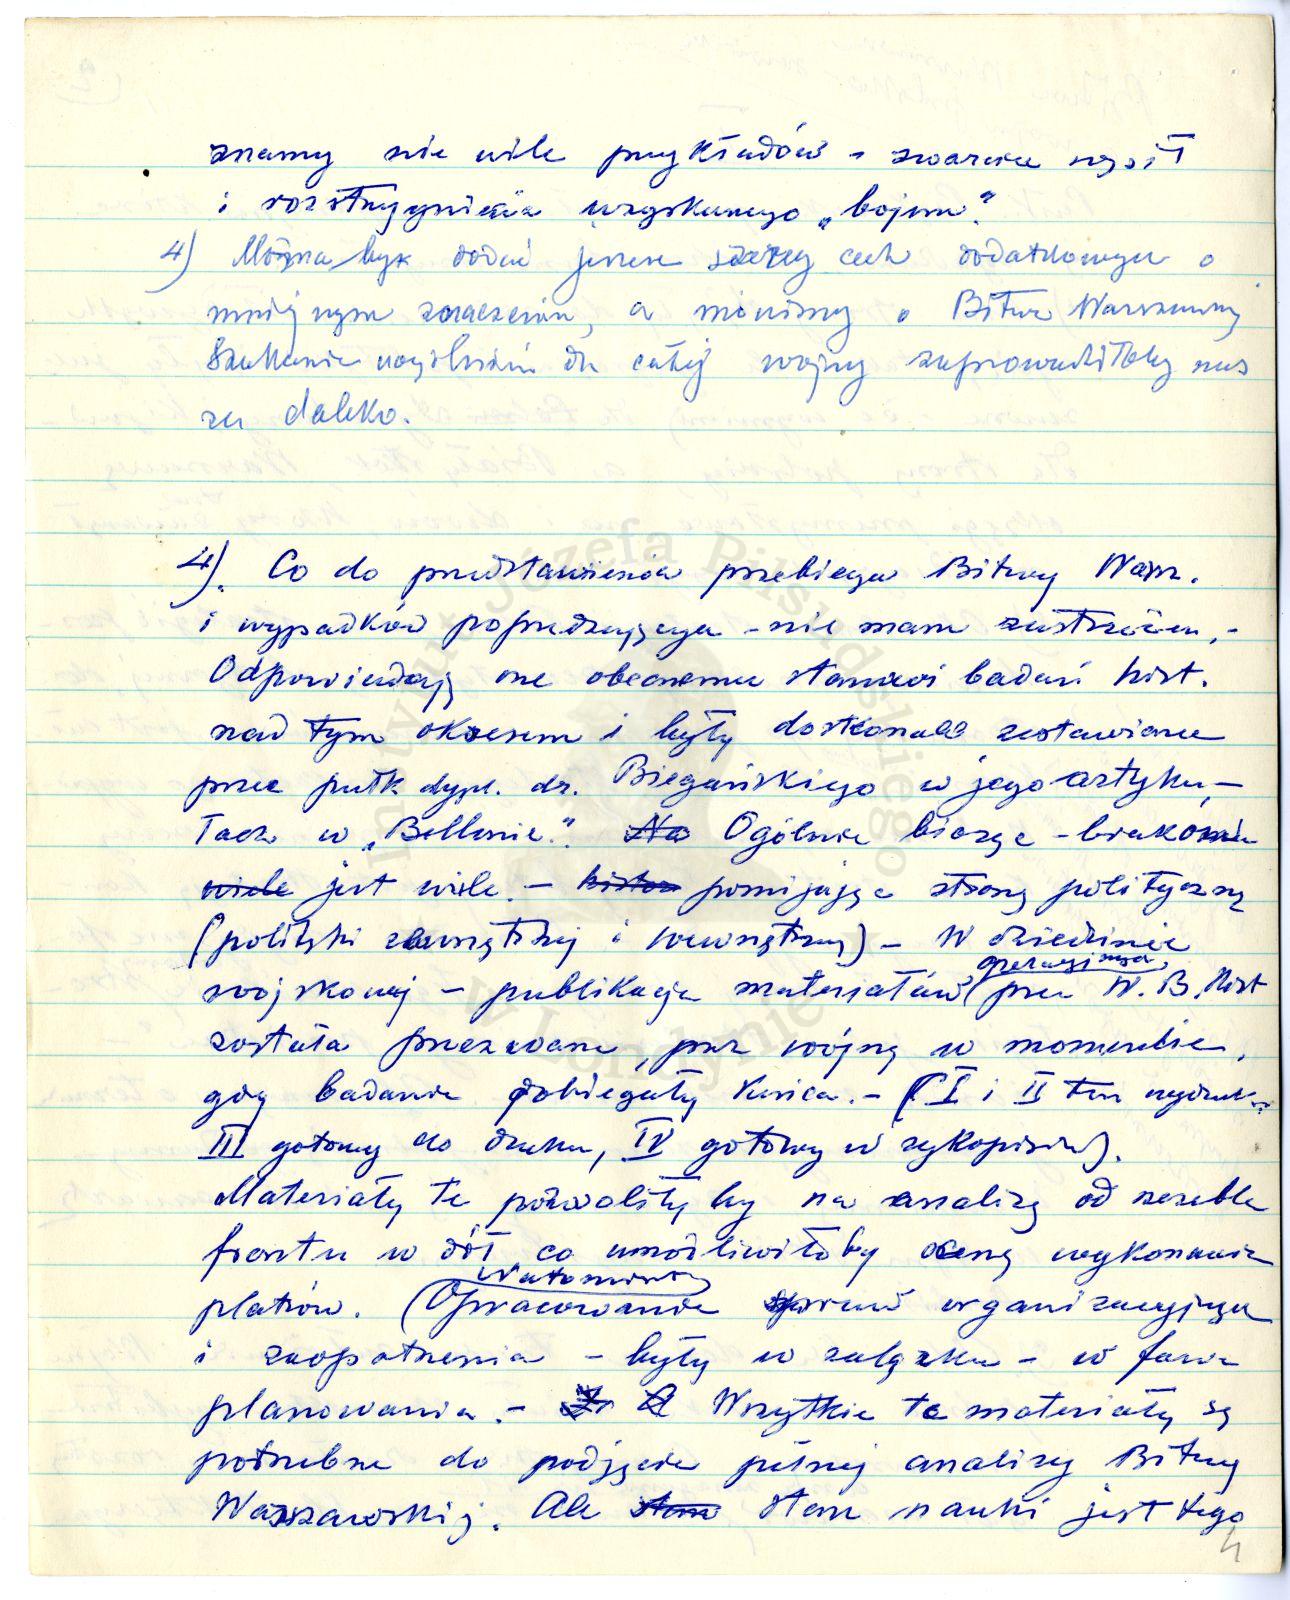 znamy nie wiele przykładów - zwarcia wysił
i rozstrzygnięcia uzyskanego „bojem”.
4) Można by dodać jeszcze szereg cech dodatkowych o
mniejszym znaczeniu, a mówimy o Bitwie Warszawskiej
Szukanie dla całej wojny zaprowadziłoby nas
za daleko.
4). Co do przedstawienia przebiegu Bitwy Warsz.
i wypadków poprzedzających - nie mam zastrzeżeń, -
Odpowiadają one obecnemu stanowi badań hist.
nad tym okresem i były doskonale zestawione
przez pułk dypl. dr. Biegańskiego w jego artyku-
łach w „Bellonie”. Na Ogólnie biorąc - braków
wiele jest wiele - pomijając stronę polityczną
(polityki zewnętrznej i wewnętrznej) - W dziedzinie
wojskowej - publikacja materiałów operacyjnych przez W. B. Hist
została przerwana, przez wojnę w momencie,
gdy badania dobiegały końca. - (I i II tom wydruk.,
III gotowy do druku, IV gotowy w rękopisie).
Materiały te pozwoliłyby na analizę od szczebla
frontu w dół co umożliwiłoby ocenę wykonania
planów. (Natomiast Opracowania spraw organizacyjnych
i zaopatrzenia - były w zalążku - w fazie
planowania. - Wszystkie te materiały są
potrzebne do podjęcia pełnej analizy Bitwy
Warszawskiej. Ale stan stan nauki jest tego
4
Instytut Józefa Piłsudskiego w Londynie